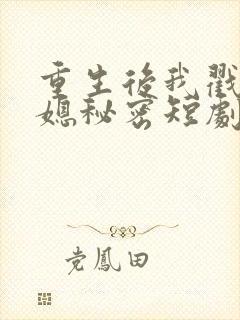 重生後我戳
媳秘密短劇
党鳳田